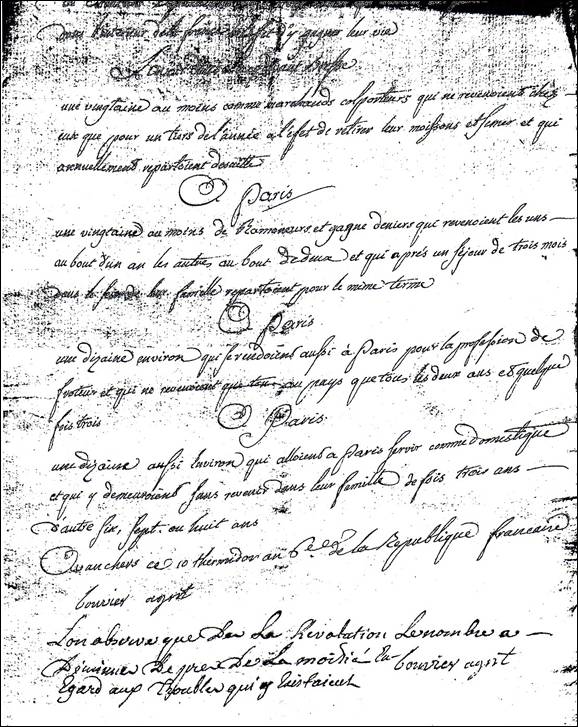 dans l'interieur de la france à l'effet d'y gagner leur vie
une vingtaine au moins comme marchands colporteurs qui ne revenoient chez
eux que pour un tiers de l'année a l'efet de retirer leur moissons et semer et qui
annuellement repartoient de suitte
A Paris
une vingtaine au moins de Ramoneurs et gagne deniers qui revenoient les uns
au bout d'un an les autres au bout de deux et qui après un séjour de trois mois
dans le sein de leur famille repartoient pour le même terme
A Paris
une dizaine environ qui se rendoient aussi à Paris pour la profession de
froteur et qui ne revenoient au pays que tous les deux ans et quelque
fois trois
A Paris
une dizaine aussi environ qui alloient à Paris servir comme domestique
et qui y demeuroient sans revenir dans leur famille de fois trois ans
d'autre six, sept, ou huit ans
Quanchers ce 10 thermidor an 6.e de la Republique francaise
bouvier agent
L'on observe que De La Revolution Le nombre a
Diminué De pres De La moitié En
bouvier agent
Egard aux Troubles qui y Existaient